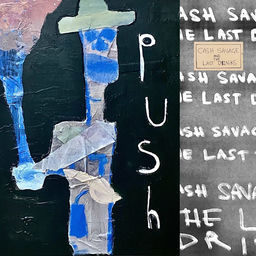 PUSh
CASH SAVAGE
AND THE
LAST DRINKS
ASH SAV
E LAST D
ASH SAVA
E LAST D
ASH SAVAG
E LAST
ASH SAVA
THE L
DRI